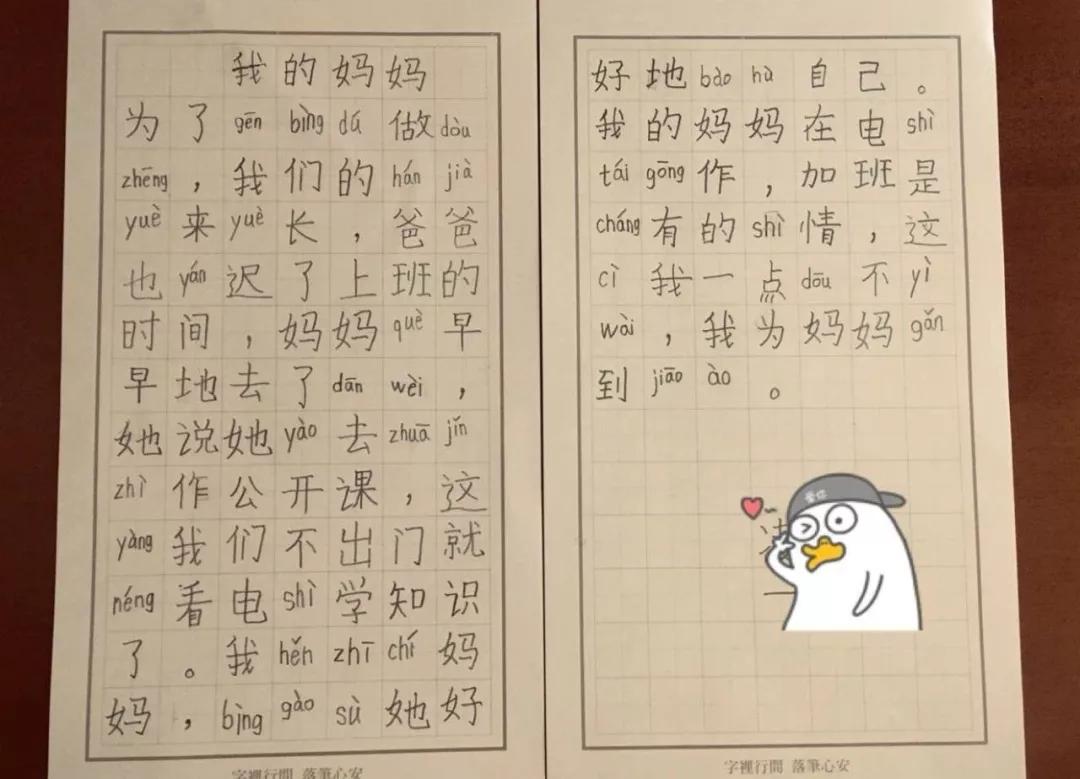 我的妈妈
为了gēn bìng dú 做dòu
zhēng，我们的hán jià
yuè来yuè长，爸爸
也yán迟了上班的
时间，妈妈què早
早地去了dān wèi，
她说她yào去zhuā jǐn
zhì作公开课，这
yàng我们不出门就
néng看电shì学知识
了。我hěn zhī chí妈
妈，bìng gào sù她好
字裡行間 落筆心安
好地bǎo hù自己。
我的妈妈在电shì
tái gōng作，加班是
cháng有的shì情，这
cì我一点dōu不yì
wài，我为妈妈gǎn
到jiāo ào。
字裡行間 落筆心安